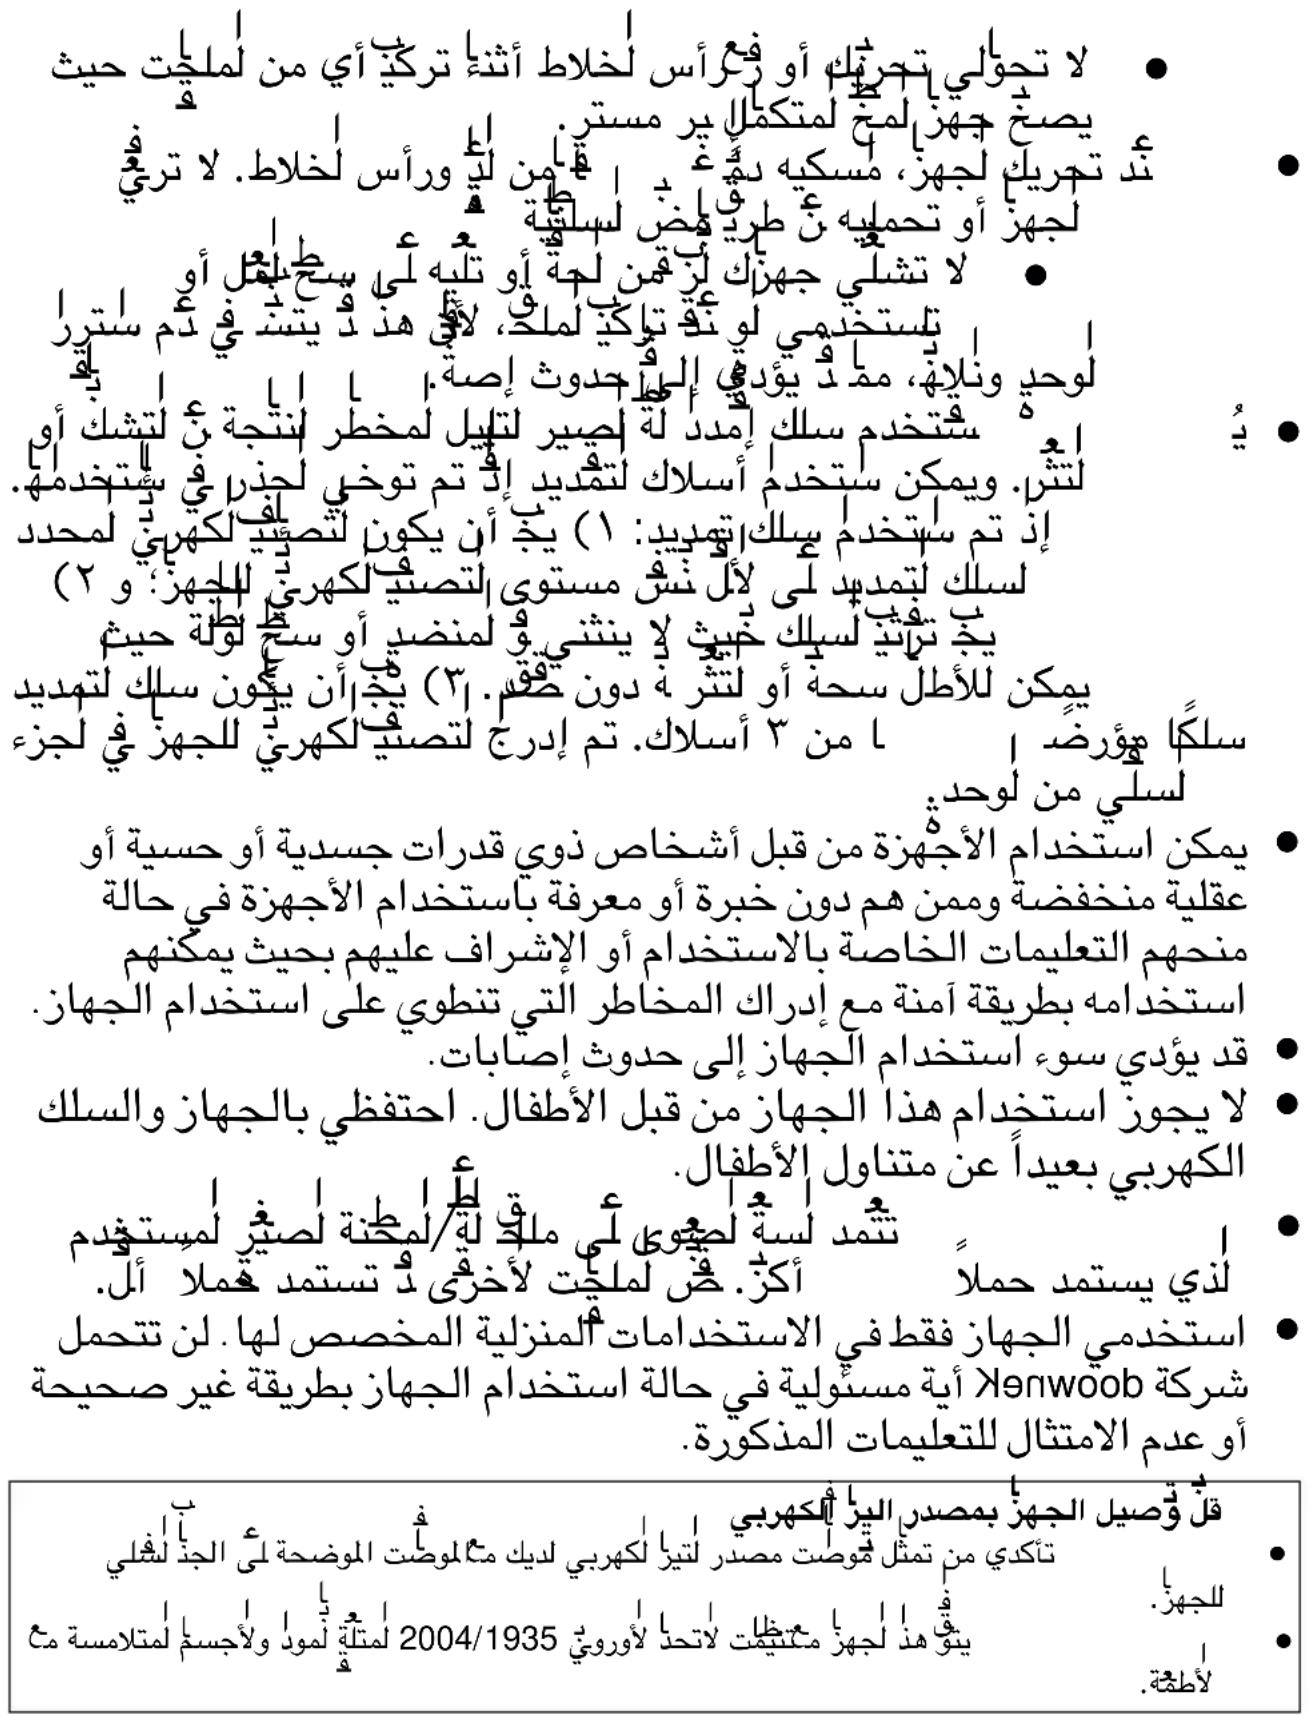 لا تحاولي تحريك أو رفع رأس الخلاط أثناء تركيب أي من الملحقات حيث
يصبح جهاز المتكامل غير مستقر.
عند تحريك الجهاز، من ورأس الخلاط. لا ترفعي
الجهاز أو تحمليه عن طريق السلطانية
لا تشغلي جهازك من أو على سطح أو
تستخدمي لو عند تركيب الملحق، لأن هذا قد يتسبب في عدم استقرار
الوحدة مما قد يؤدي إلى حدوث إصابة.
يُستخدم سلك إمداد الطاقة القصير لتقليل المخاطر الناتجة عن التشابك أو
التعثر. ويمكن استخدام أسلاك التمديد إذا تم توخي الحذر في استخدامها.
إذا تم استخدام سلك تمديد: ١) يجب أن يكون التصنيف الكهربي المحدد
لسلك التمديد على الأقل نفس مستوى التصنيف الكهربي للجهاز؛ و ٢)
يجب ترتيب السلك بحيث لا ينثني فوق المنضدة أو سطح الطاولة حيث
يمكن للأطفال سحبه أو التعثر به دون قصد. ٣) يجب أن يكون سلك التمديد
سلكًا مؤرضًا من ٣ أسلاك. تم إدراج التصنيف الكهربي للجهاز في الجزء
السفلي من الوحدة.
يمكن استخدام الأجهزة من قبل أشخاص ذوي قدرات جسدية أو حسية أو
عقلية منخفضة وممن هم دون خبرة أو معرفة باستخدام الأجهزة في حالة
منحهم التعليمات الخاصة بالاستخدام أو الإشراف عليهم بحيث يمكنهم
استخدامه بطريقة آمنة مع إدراك المخاطر التي تنطوي على استخدام الجهاز.
قد يؤدي سوء استخدام الجهاز إلى حدوث إصابات.
لا يجوز استخدام هذا الجهاز من قبل الأطفال. احتفظي بالجهاز والسلك
الكهربي بعيداً عن متناول الأطفال.
تعتمد السعة القصوى على ملحق المطحنة الصغير المستخدم
الذي يستمد حملاً أكبر. بعض الملحقات الأخرى قد تستمد حملاً أقل.
استخدمي الجهاز فقط في الاستخدامات المنزلية المخصص لها. لن تتحمل
شركة Kenwood أية مسئولية في حالة استخدام الجهاز بطريقة غير صحيحة
أو عدم الامتثال للتعليمات المذكورة.
قبل توصيل الجهاز بمصدر التيار الكهربي
تأكدي من تماثل مواصفات مصدر التيار الكهربي لديك مع المواصفات الموضحة على الجانب السفلي
للجهاز.
يتوافق هذا الجهاز مع تنظيمات الاتحاد الأوروبي 1935/2004 المتعلقة بالمواد والأجسام المتلامسة مع
الأطعمة.